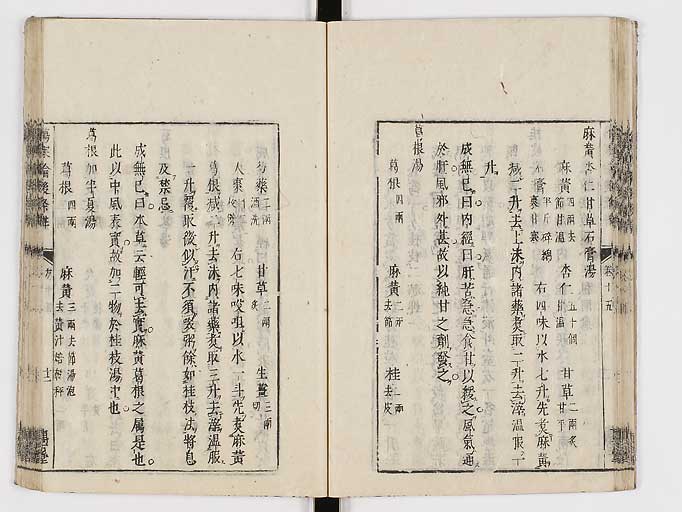 麻黃杏仁甘草石膏湯
麻黃 四兩去節甘溫 杏仁 五十個甘溫 甘草 二兩炙甘平
石膏 半斤碎綿裹甘寒 右四味以水七升先煑麻黃
減二升去上沫内諸藥煑取二升去滓溫服一
升
成無已曰内經曰肝苦急急食甘以緩之風氣通
於肝風邪外甚故以純甘之劑發之
葛根湯
葛根 四兩 麻黃 三兩去節 桂 二兩去皮
芍藥 二兩酒洗 甘草 二兩炙 生薑 三兩切
大棗 右七味㕮咀以水一斗先煑麻黃
葛根減二升去沫内諸藥煑取三升去滓溫服一
升覆取微似汗不須啜粥餘如桂枝法將息
及禁忌
成無已曰本草云輕可去實麻黃葛根之屬是也
此以中風表實故加二物於桂枝湯中也
葛根加半夏湯
葛根 四兩 麻黃 三兩去節湯泡去黃汁焙乾秤
卷十五